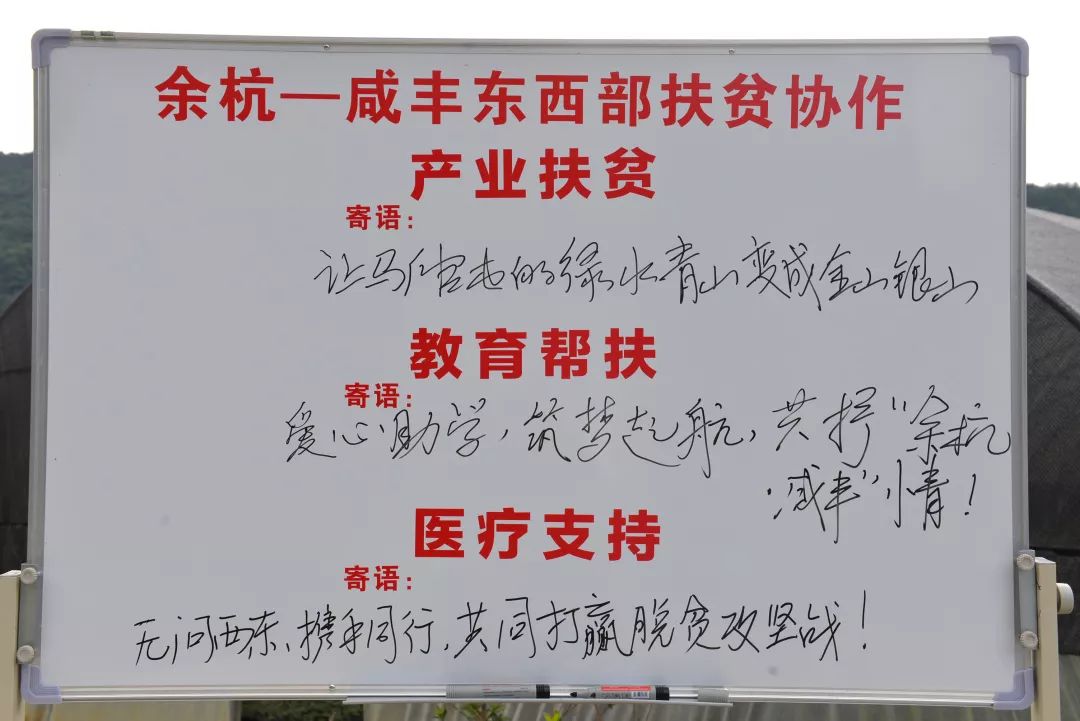 余杭—咸丰东西部扶贫协作
产业扶贫
寄语：
让马倌屯的绿水青山变成金山银山
教育帮扶
寄语：
爱心助学，筑梦起航，共抒“余杭
·咸丰”情！
医疗支持
寄语：
无问西东、携手同行，共同打赢脱贫攻坚战！